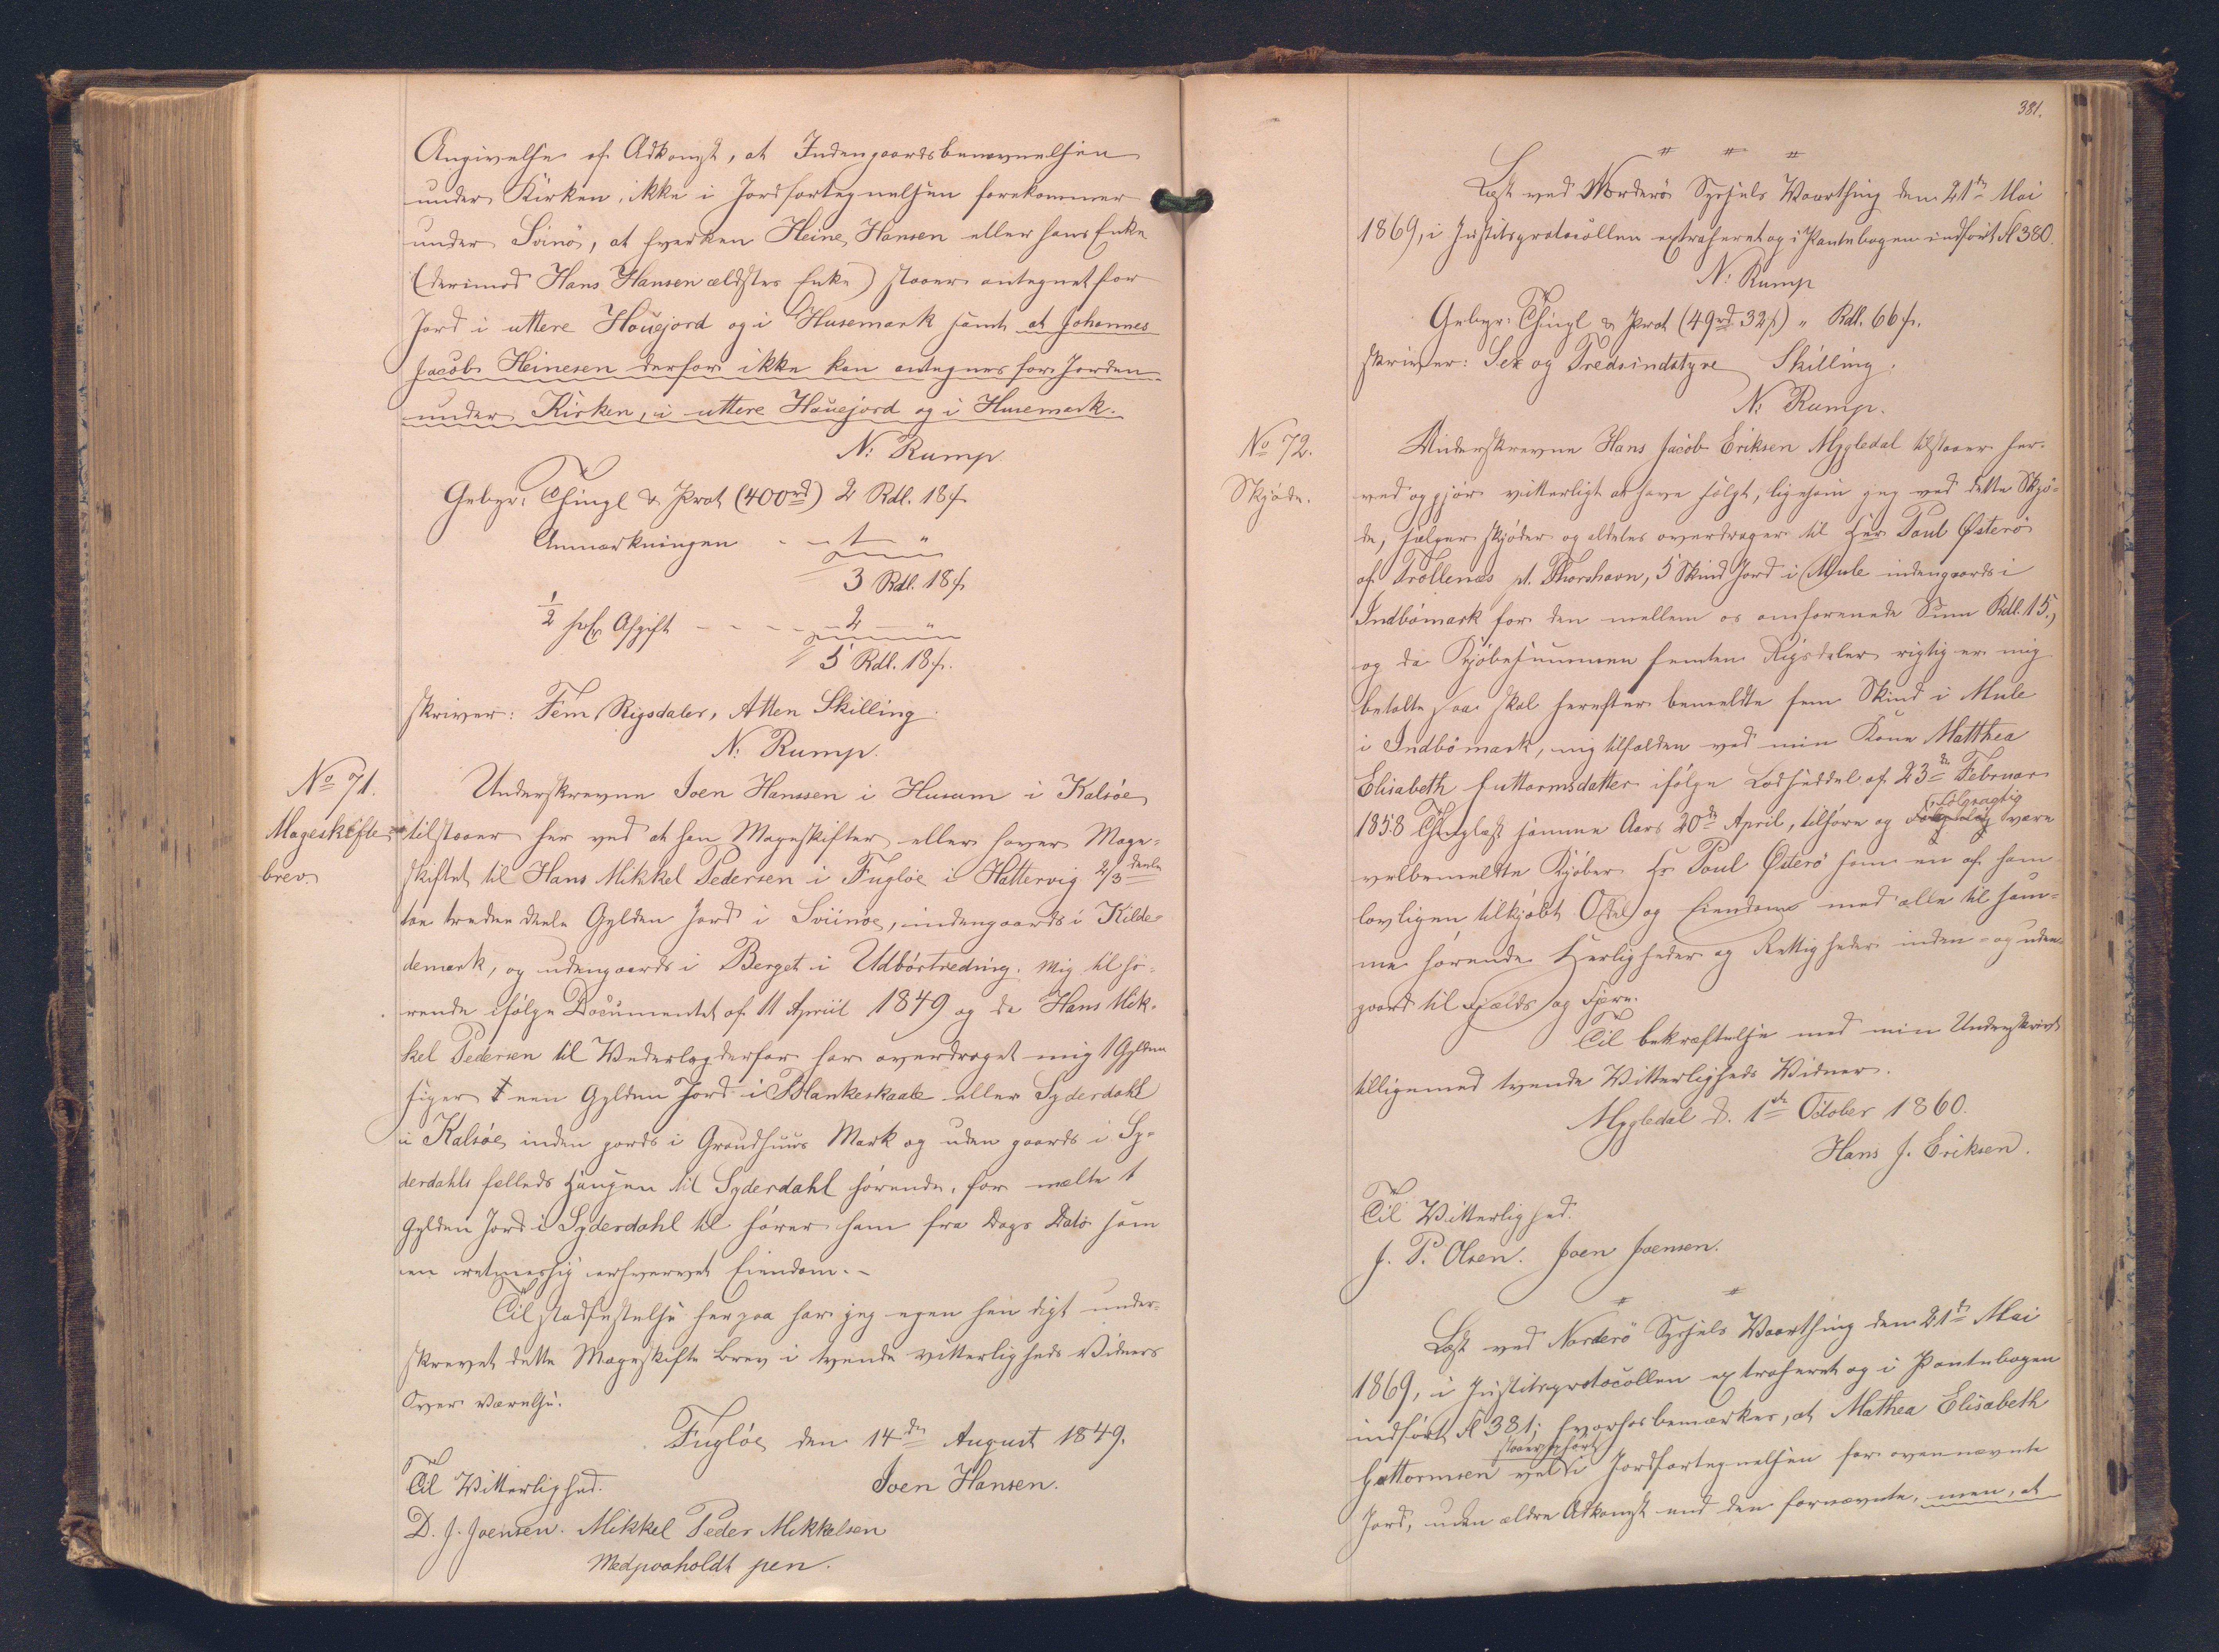 Angivelse af Adkomst, at Indengaardsbenævnelsen
under Kirken, ikke i Jordfortegnelsen forekommer
under Svinö, at hverken Heine Hansen eller hans Enke
(derimod Hans Hansen ældstes Enke) staaer antegnet for
Jord i uttere Houejord og i Husemark samt at Johannes
Jacob Heinesen derfor ikke kan antegnes for Jorden
under Kirken, i uttere Houejord og i Husemark.
N: Rump
Gebyr: Thingl & Prot (400rd) 2 Rdl. 18 s
Anmærkningen - - 1 "
3 Rdl. 18 s
1/2 Afgift - - - - - 2 - "
5 Rdl. 18 s.
skriver: Fem Rigsdaler, Atten Skilling.
N: Rump.
No 71.
Mageskifte-
brev.
Underskrevne Joen Hanssen i Husum i Kalsöe
tilstaaer her ved at han Mageskifter eller haver Mage-
skiftet til Hans Mikkel Pedersen i Fuglöe i Hattervig 2/3 deele
toe trediedeele Gylden Jord i Sviinöe, indengaards i Kilde-
demark, og udengaards i Berget i Udbörtredning. Mig til hö-
rende ifölge Documentet af 11 Apriil 1849 og da Hans Mik-
kel Pedersen til Wederlag derfor har overdraget mig 1 Gylden
siger 1 een Gylden Jord i Blankeskaale eller Syderdahl
i Kalsöe inden gards i Graudhuus Mark og uden gaards i Sy-
derdahls fælleds Haugen til Syderdahl hörende, for mælte 1
Gylden Jord i Syderdahl til hörer ham fra Dags Dato som
en retmessig erhvervet Eiendom. -
Til stadfestelse herpaa har jeg egen hændigt under-
skrevet dette Mageskifte Brev i tvende vitterligheds Vidners
Over værelse.
Fuglöe den 14de August 1849.
Til Vitterlighed. Joen Hansen.
D. J. Joensen. Mikkel Peder Mikkelsen
Medpaaholdt pen.
381.
Læst ved Norderö Syssels Vaarthing den 21de Mai
1869, i Justitsprotocollen extraheret og i Pantebogen indfört Fl 380.
N: Rump
Gebyr: Thingl & Prot (49rd 32 s) " Rdl. 66 s.
skriver: Sex og Tredsindstyve Skilling.
N: Rump.
No 72.
Skjöde.
Underskrevne Hans Jacob Eriksen Mygledal tilstaaer her-
ved og gjör vitterligt at have solgt, ligesom jeg ved dette Skjö-
de, sælger skjöder og aldeles overdrager til Hr Poul Østerö
af Trollenæs pt. Thorshavn, 5 Skind Jord i Mule indengaards i
Indbömark for den mellem os omforenede Sum Rdl. 15.,
og da Kjöbesummen femten Rigsdaler rigtig er mig
betalte saa skal herefter bemeldte fem Skind i Mule
i Indbömark, mig tilfalden ved min Kone Matthea
Elisabeth Guttormsdatter ifölge Lodseddel af 23de Februar
1858 Thinglæst samme Aars 20de April, tilhöre og fölgagtig være
velbemeldte Kjöber Hr Poul Østerö som en af ham
lovligen tilkjöbt Odel og Eiendom med alle til sam-
me hörende Herligheder og Rettigheder inden- og uden-
gaard til Fjelds og Fjære.
Til bekræftelse med min Underskrivt
tilligemed tvende Vitterligheds Vidner.
Mygledal d. 1ste October 1860.
Hans J. Eriksen.
Til Vitterlighed.
J. P. Olsen. Joen Joensen.
Læst ved Norderö Syssels Vaarthing den 21de Mai
1869, i Justitsprotocollen extraheret og i Pantebogen
indfört Fl 381; hvorhos bemærkes, at Mathea Elisabeth
staaer opfört
Guttormsen vel i Jordfortegnelsen for ovennævnte
Jord, uden ældre Adkomst end den fornævnte, men, at